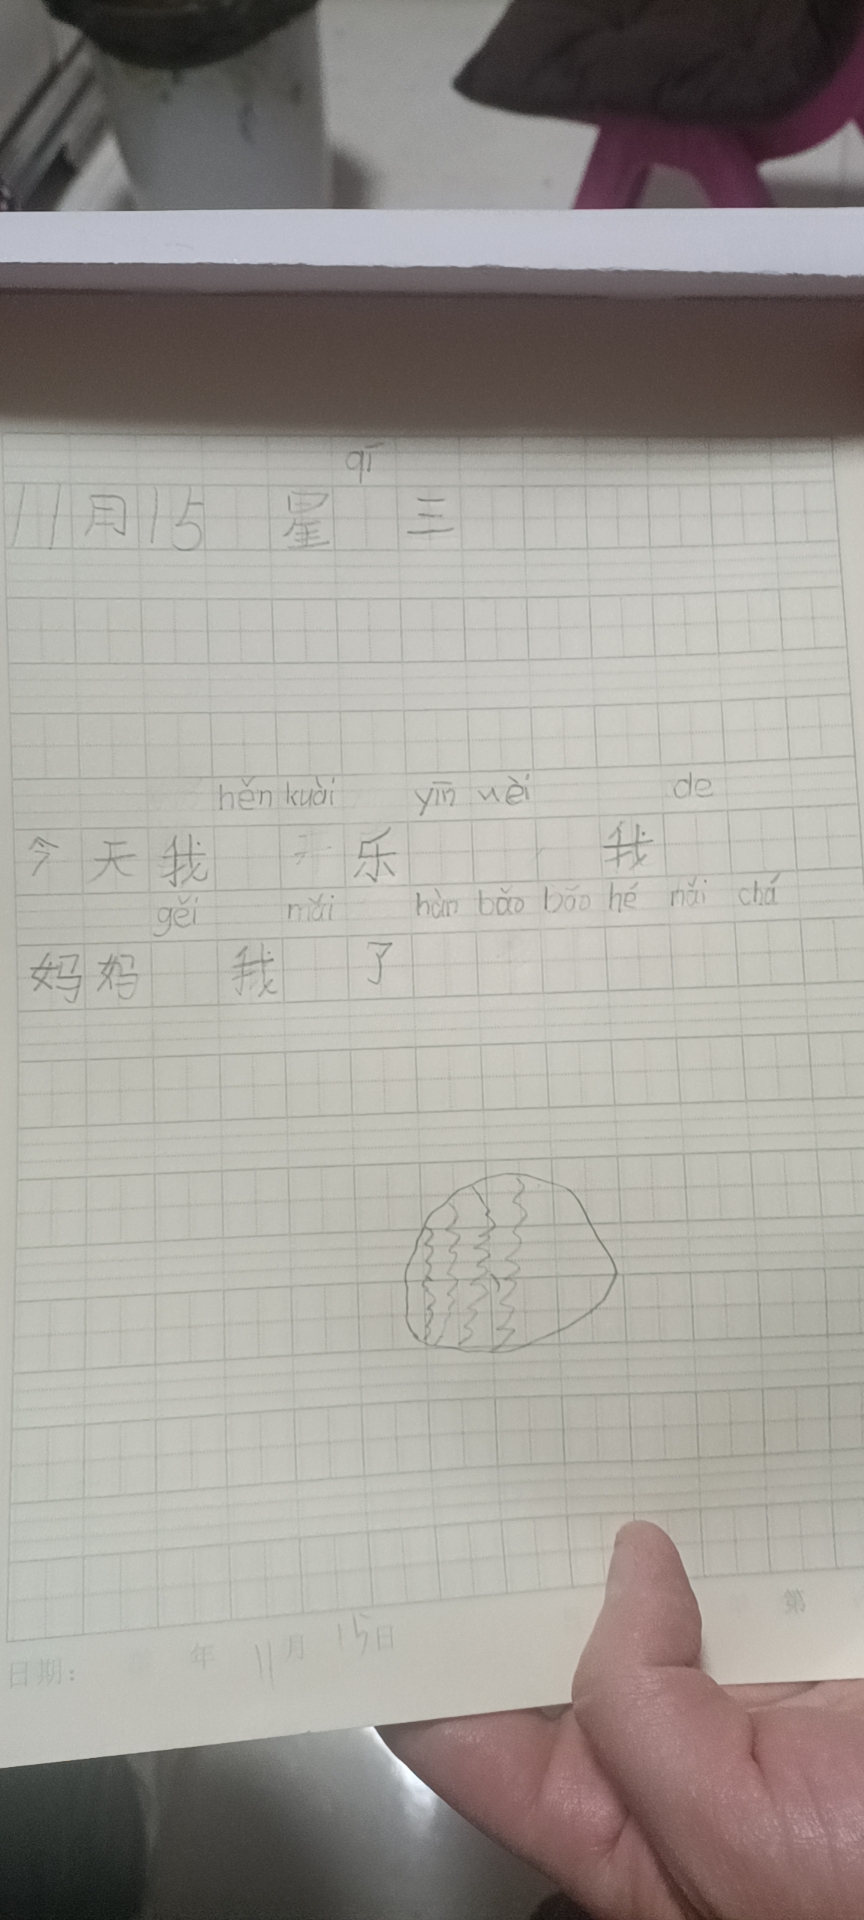 qī
11月15 星 三
hěn kuài yīn uèi de
今天我 乐 我
gěi mǎi hàn bǎo bǎo hé nǎi chá
妈妈 我 了
日期: 年 11月 15日 第